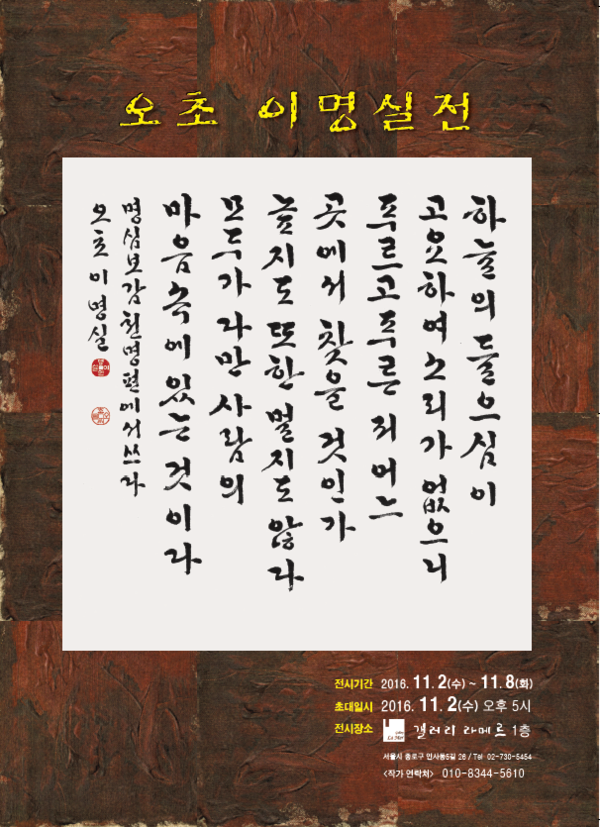 오초 이명실전
하늘의 들으심이
고요하여 소리가 없으니
푸르고 푸른 저 어느
곳에서 찾을 것인가
높지도 또한 멀지도 않다
모두가 다만 사람의
마음속에 있는 것이라
명심보감 천명편에서 쓰다
오초 이명실
전시기간 2016. 11. 2(수) ~ 11. 8(화)
초대일시 2016. 11. 2(수) 오후 5시
전시장소 갤러리 라메르 1층
서울시 종로구 인사동5길 26 / Tel 02-730-5454
<작가 연락처> 010-8344-5610